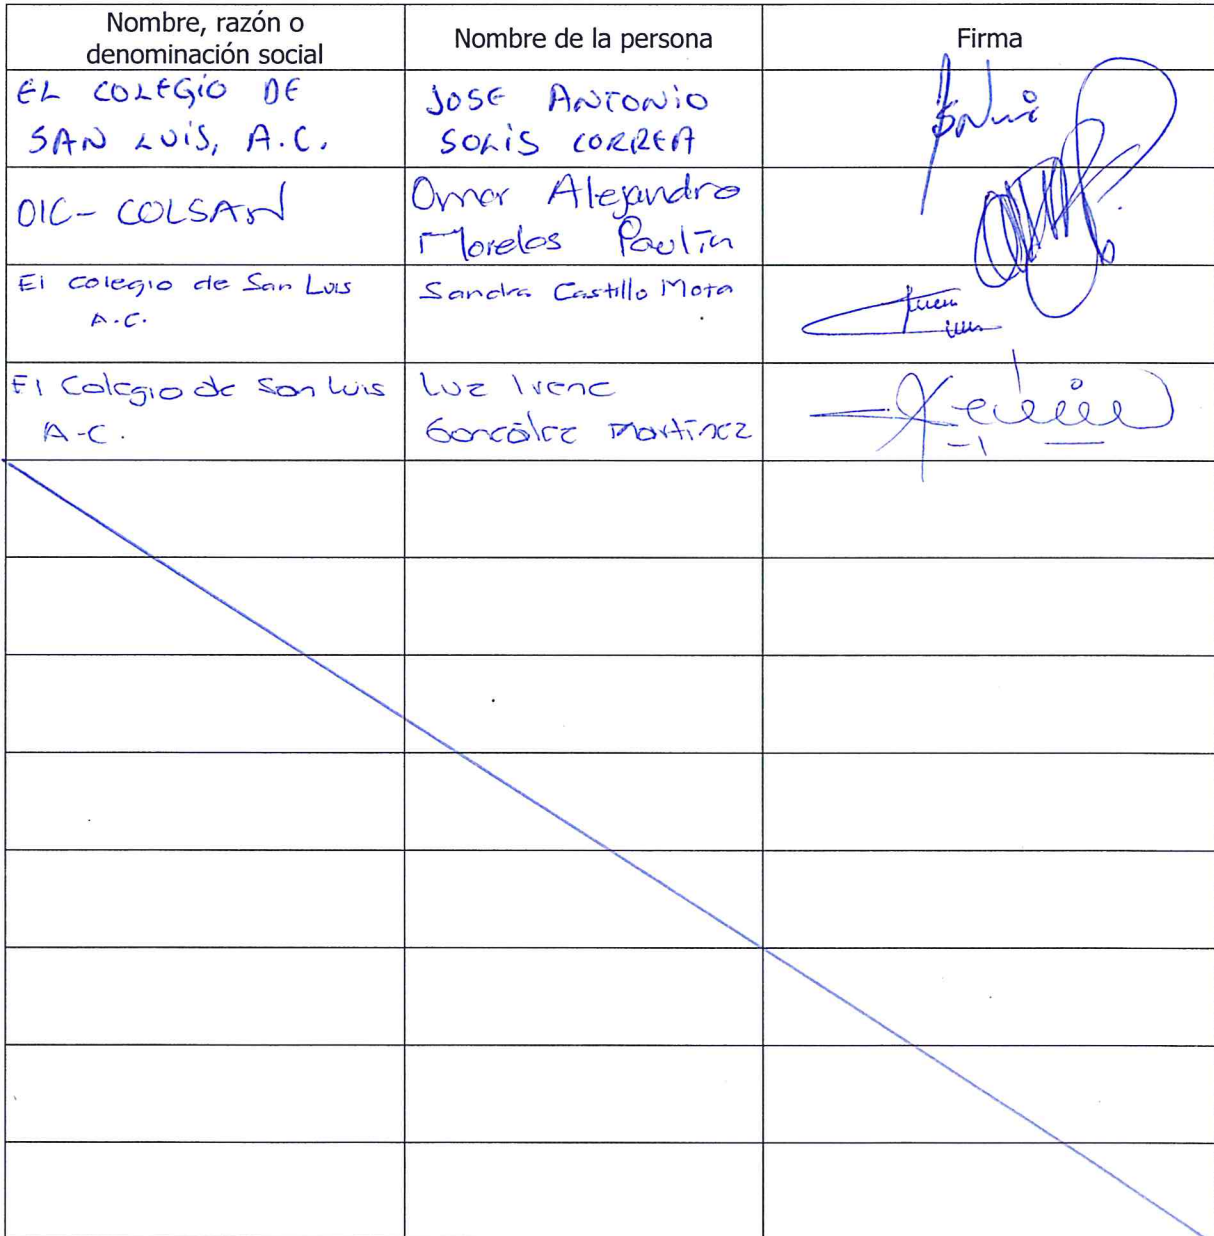 Nombre, razón o
denominación social
Nombre de la persona
Firma
EL COLEGIO DE
SAN LUIS, A.C.
JOSE ANTONIO
SOLIS CORREA
OIC- COLSAN
Omar Alejandro
Morelos Paulín
El colegio de San Luis
A.C.
Sandra Castillo Mota
El Colegio de San Luis
A-C.
Luz Irene
González Martínez